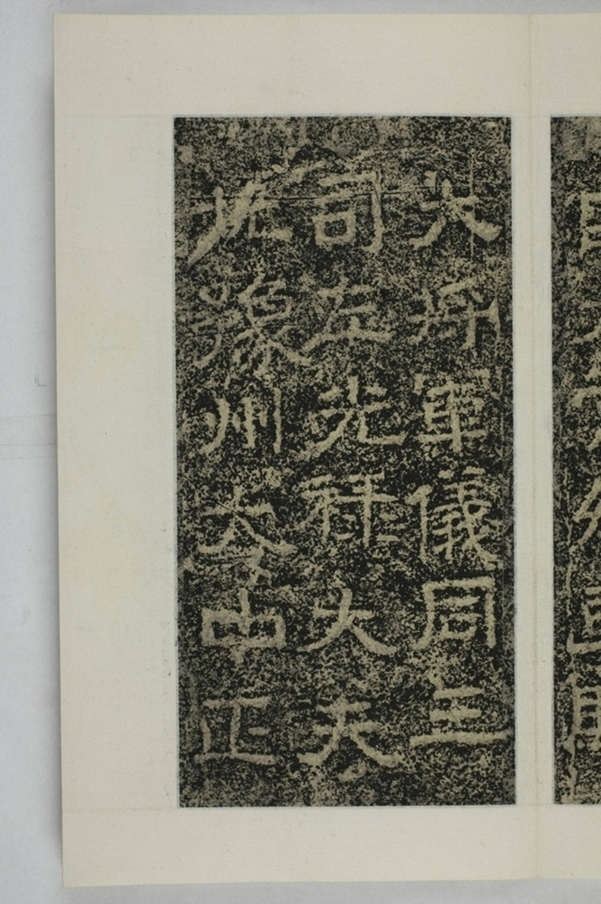 大將軍儀同三
司左光祿大夫
北豫州大中正